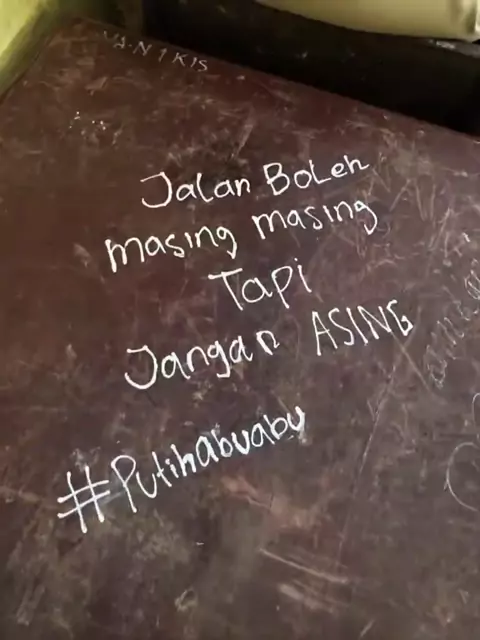 Jalan BoLeh
masing masing
Tapi
Jangan ASING
#Putihabuabu